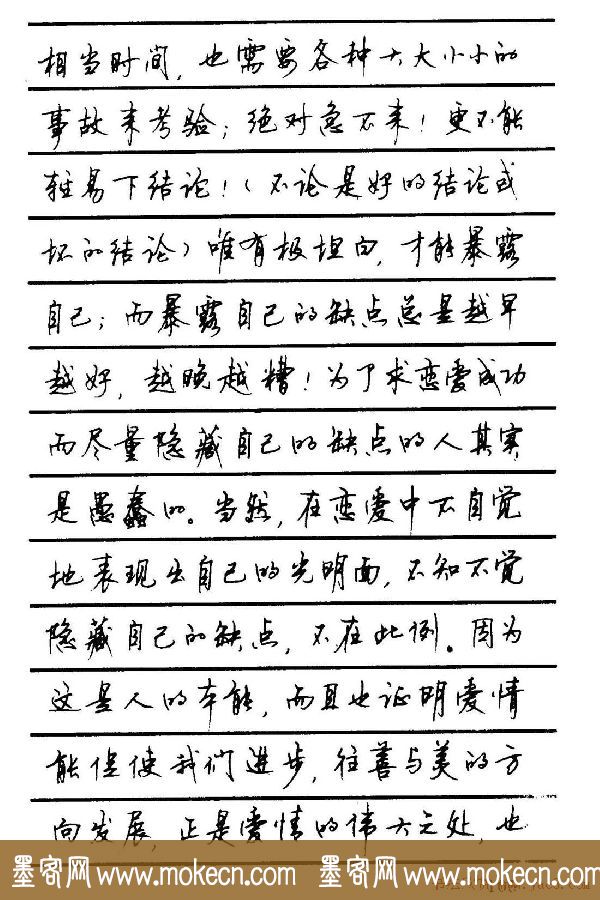 相当时间，也需要各种大大小小的
事故来考验；绝对急不来！更不能
轻易下结论！（不论是好的结论或
坏的结论）唯有极坦白，才能暴露
自己；而暴露自己的缺点总是越早
越好，越晚越糟！为了求恋爱成功
而尽量隐藏自己的缺点的人其实
是愚蠢的。当然，在恋爱中不自觉
地表现出自己的光明面，不知不觉
隐藏自己的缺点，不在此例。因为
这是人的本能，而且也证明爱情
能促使我们进步，往善与美的方
向发展，正是爱情的伟大之处，也
墨客网 www.mokecn.com 墨客网 www.mokecn.com